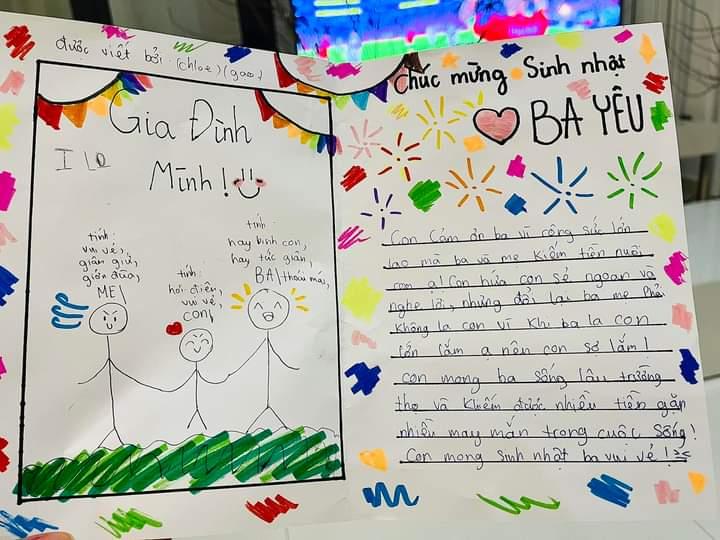 được viết bởi: (chloe) (gạo)
Gia Đình
I LO
Mình!
tính:
vui vẻ,
giận giữ,
giởn đùa,
ME
tính:
hơi điên,
vui vẻ,
con
tính:
hay binh con,
hay tức giận,
BA thoải mái,
Chúc mừng Sinh nhật
BA YÊU
Con Cảm ơn ba vì công sức lớn
lao mà ba và mẹ kiếm tiền nuôi
con ạ! Con hứa con sẻ ngoan và
nghe lời, nhưng đổi lại ba mẹ phải
không la con vì khi ba la con
lớn lắm ạ nên con sợ lắm!
con mong ba sống lâu trường
thọ và khiếm được nhiều tiền gặp
nhiều may mắn trong cuộc sống!
Con mong sinh nhật ba vui vẻ!